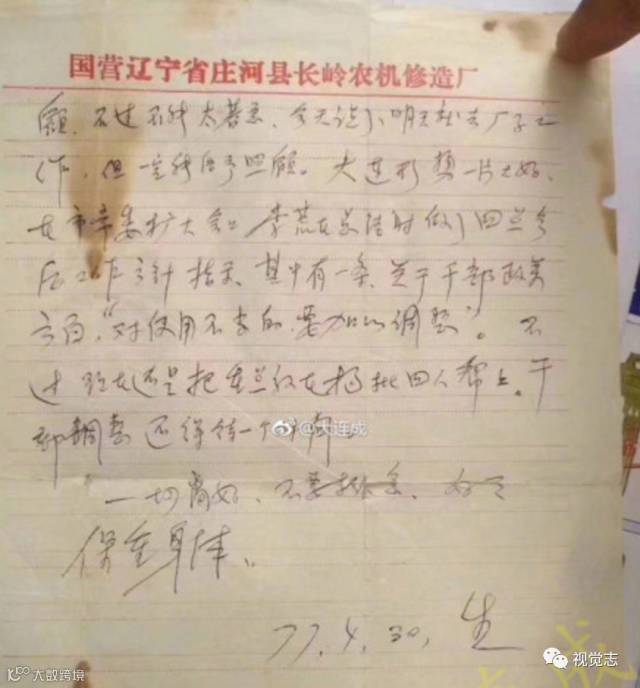 国营辽宁省庄河县长岭农机修造厂
顾，不过不能太着急，今天说了，明天就去厂子工
作，但一定能给予照顾。大连形势一片大好，
在市革委扩大会上李荒在总结时做了四点今
后工作方针指示，其中有一条，关于干部政策
方面，“对使用不当的，要加以调整”。不
过现在还是把重点放在揭批四人帮上，干
部调整还得待一个时期
一切尚好，不要挂念，好
保重身体。
77.4.30，生
@大连成
视觉志
大数跨境